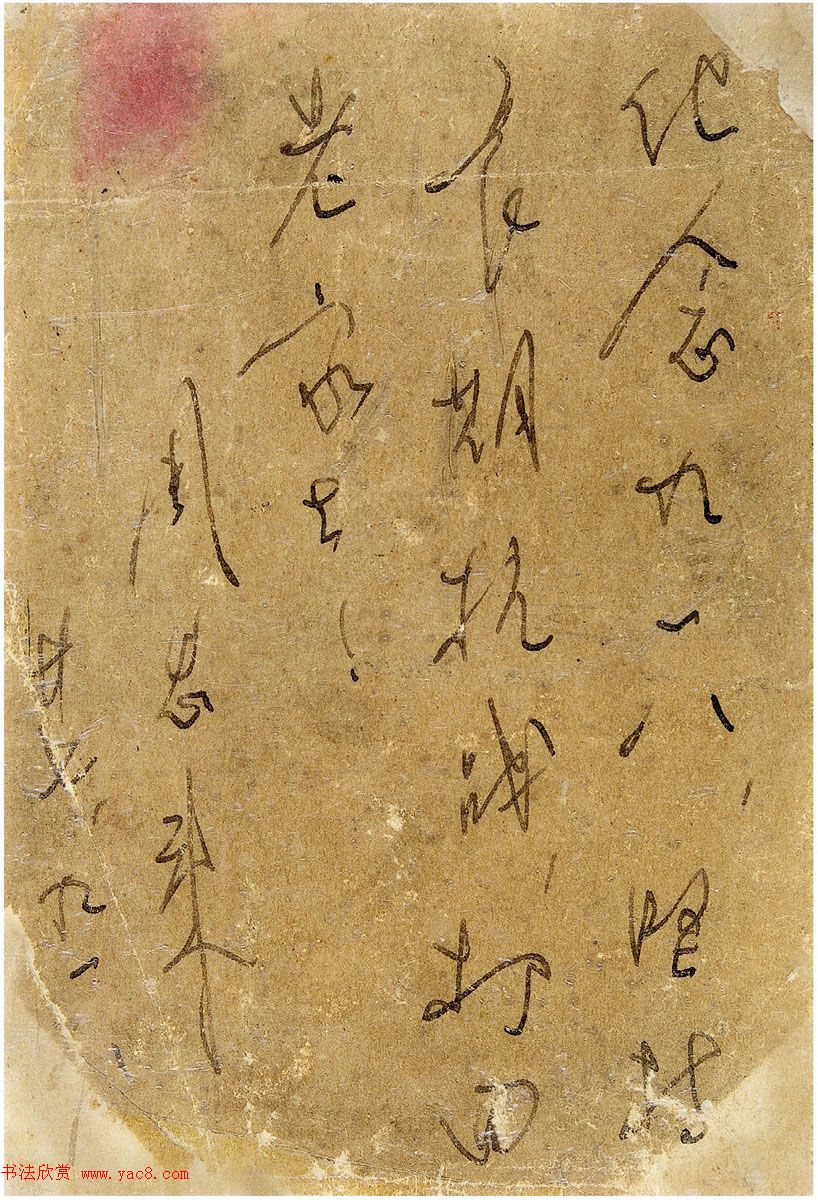 纪念九一八，坚持
长期抗战，打回
老家去！
周恩来
廿七，九，一
书法欣赏 www.yac8.com